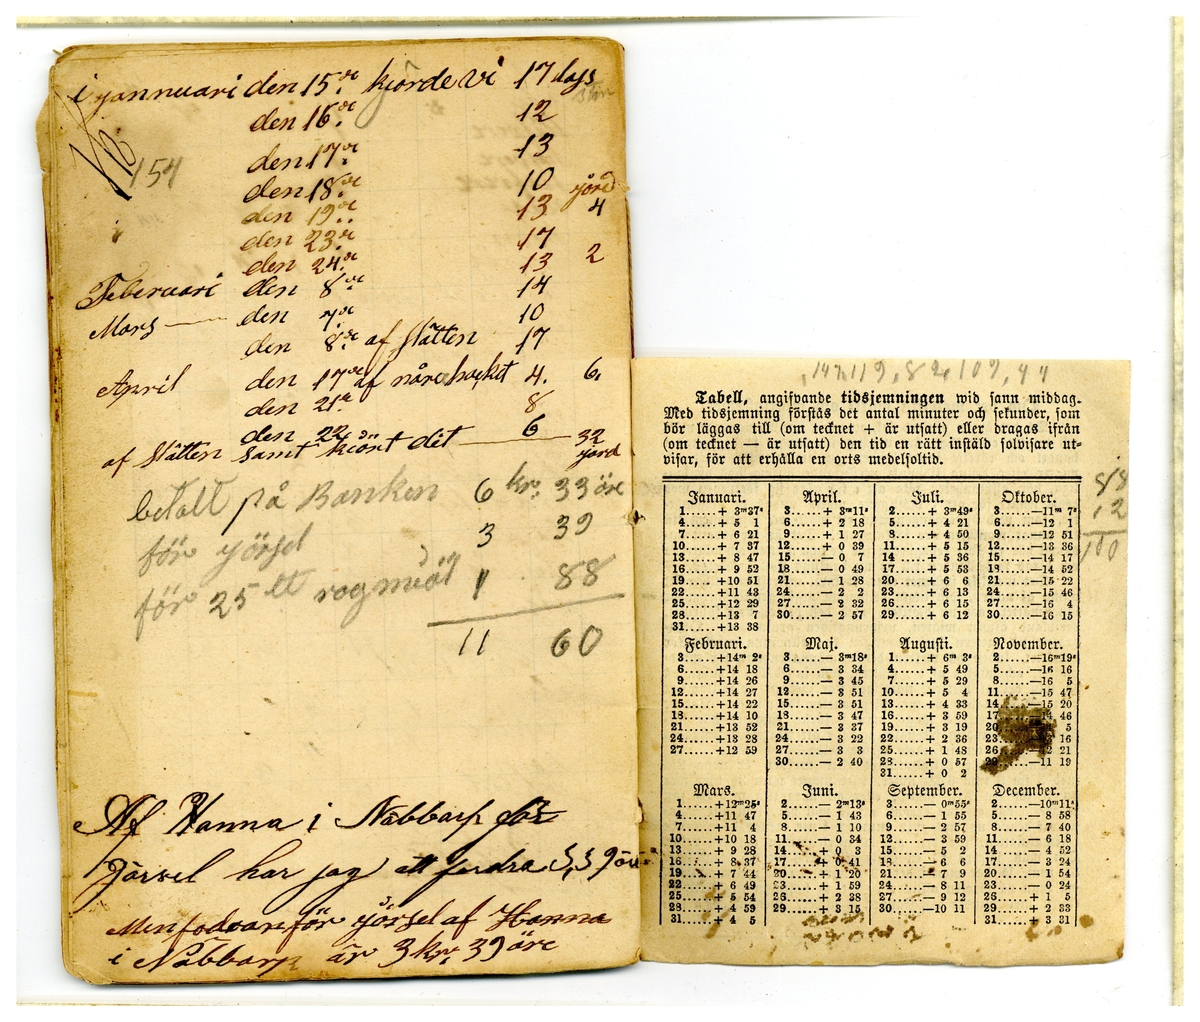 i jannuari den 15:de kjorde vi 17 lass
den 16:de 12
154
den 17:de 13
den 18:de 10 jörd
den 19:de 13 4
den 23:de 17
den 24:de 13 2
Feberuari den 8:de 14
Mars — den 7:de 10
den 8:de af Slätten 17
April den 17de af 4. 6.
den 21:a 8
den 22 6
af Slätten samt kjört dit — 32
jord
betalt på Banken 6 kr. 33 öre
för jörsel 3 39
för 25 tt rogmiöl 1 88
11 60
Af Hanna i Nabbarp för
Jörsel har jag att fordra 3,39 öre
Men fodran för jörsel af Hanna
i Nabbarp är 3 kr. 39 öre
Tabell, angifvande tidsjemningen wid sann middag.
Med tidsjemning förstås det antal minuter och sekunder, som
bör läggas till (om tecknet + är utsatt) eller dragas ifrån
(om tecknet — är utsatt) den tid en rätt instäld solvisare ut-
visar, för att erhålla en orts medelsoltid.
88
12
100
Januari. April. Juli. Oktober.
1......+ 3m37s 3......+ 3m11s 2......+ 3m49s 3......—11m 7s
4......+ 5 1 6......+ 2 18 5......+ 4 21 6......—12 1
7......+ 6 21 9......+ 1 27 8......+ 4 50 9......—12 51
10......+ 7 37 12......+ 0 39 11......+ 5 15 12......—13 36
13......+ 8 47 15......— 0 7 14......+ 5 36 15......—14 17
16......+ 9 52 18......— 0 49 17......+ 5 53 18......—14 52
19......+10 51 21......— 1 28 20......+ 6 6 21......—15 22
22......+11 43 24......— 2 2 23......+ 6 13 24......—15 46
25......+12 29 27......— 2 32 26......+ 6 15 27......—16 4
28......+13 7 30......— 2 57 29......+ 6 12 30......—16 15
31......+13 38
Februari. Maj. Augusti. November.
3......+14m 2s 3......— 3m18s 1......+ 6m 3s 2......—16m19s
6......+14 18 6......— 3 34 4......+ 5 49 5......—16 16
9......+14 26 9......— 3 45 7......+ 5 29 8......—16 5
12......+14 27 12......— 3 51 10......+ 5 4 11......—15 47
15......+14 22 15......— 3 51 13......+ 4 33 14......—15 20
18......+14 10 18......— 3 47 16......+ 3 59 17......—14 46
21......+13 52 21......— 3 37 19......+ 3 19 20...... 5
24......+13 28 24......— 3 22 22......+ 2 36 23...... 16
27......+12 59 27......— 3 3 25......+ 1 48 26......—12 21
30......— 2 40 28......+ 0 57 29......—11 19
31......+ 0 2
Mars. Juni. September. December.
1......+12m25s 2......— 2m13s 3......— 0m55s 2......—10m11s
4......+11 47 5......— 1 43 6......— 1 55 5......— 8 58
7......+11 4 8......— 1 10 9......— 2 57 8......— 7 40
10......+10 18 11......— 0 34 12......— 3 59 11......— 6 18
13......+ 9 28 14......+ 0 3 15......— 5 2 14......— 4 52
16......+ 8 37 17......+ 0 41 18......— 6 6 17......— 3 24
19......+ 7 44 20......+ 1 20 21......— 7 9 20......— 1 54
22......+ 6 49 23......+ 1 59 24......— 8 11 23......— 0 24
25......+ 5 54 26......+ 2 38 27......— 9 12 26......+ 1 5
28......+ 4 59 29......+ 3 15 30......—10 11 29......+ 2 33
31......+ 4 5 31......+ 3 31